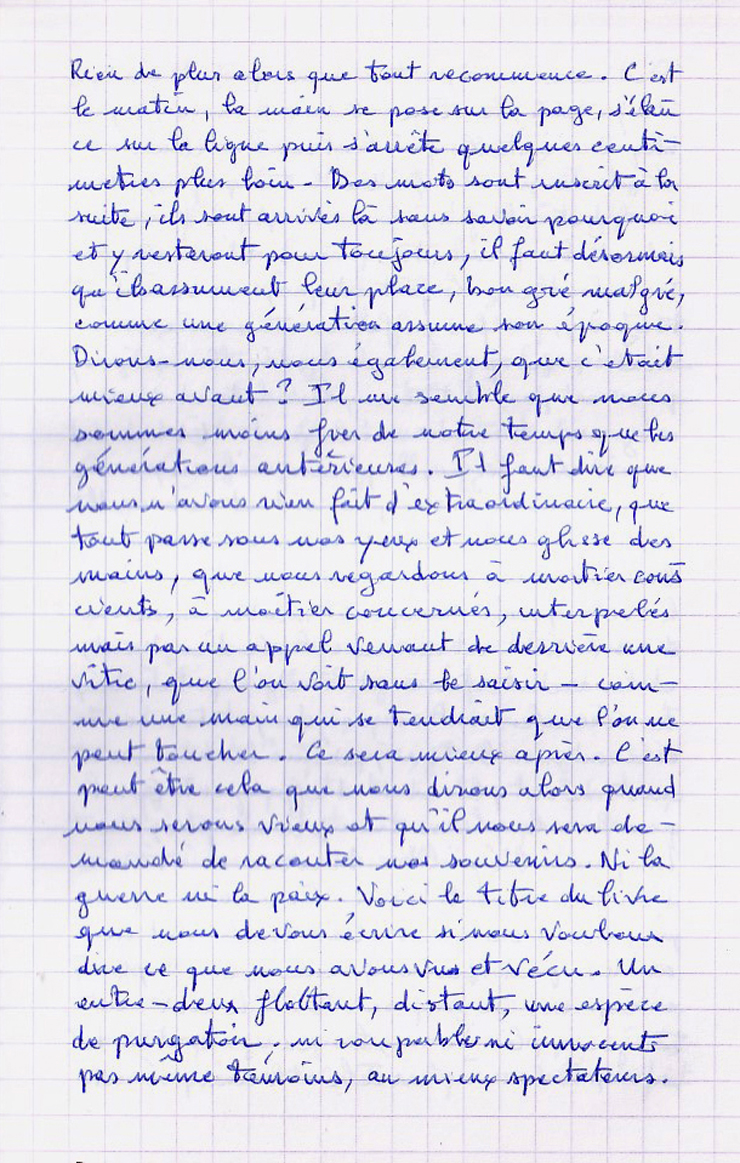 Rien de plus alors que tout recommence. C'est
le matin, la main se pose sur la page, s'élan
ce sur la ligne puis s'arrête quelques centi-
mètres plus loin - Des mots sont inscrit à la
suite, ils sont arrivés là sans savoir pourquoi
et y resteront pour toujours, il faut désormais
qu'ils assument leur place, bon gré malgré,
comme une génération assume son époque.
Dirons-nous, nous également, que c'était
mieux avant ? Il me semble que nous
sommes moins fier de notre temps que les
générations antérieures. Il faut dire que
nous n'avons rien fait d'extraordinaire, que
tout passe sous nos yeux et nous glisse des
mains, que nous regardons à moitier cons
cients, à moitier concernés, interpelés
mais par un appel venant de derrière une
vitre, que l'on voit sans le saisir - com-
me une main qui se tendrait que l'on ne
peut toucher. Ce sera mieux après. C'est
peut être cela que nous dirons alors quand
nous serons vieux et qu'il nous sera de-
mandé de raconter nos souvenirs. Ni la
guerre ni la paix. Voici le titre du livre
que nous devons écrire si nous voulons
dire ce que nous avons vus et vécu. Un
entre-deux flottant, distant, une espèce
de purgatoir. ni coupable ni innocents
pas même témoins, au mieux spectateurs.